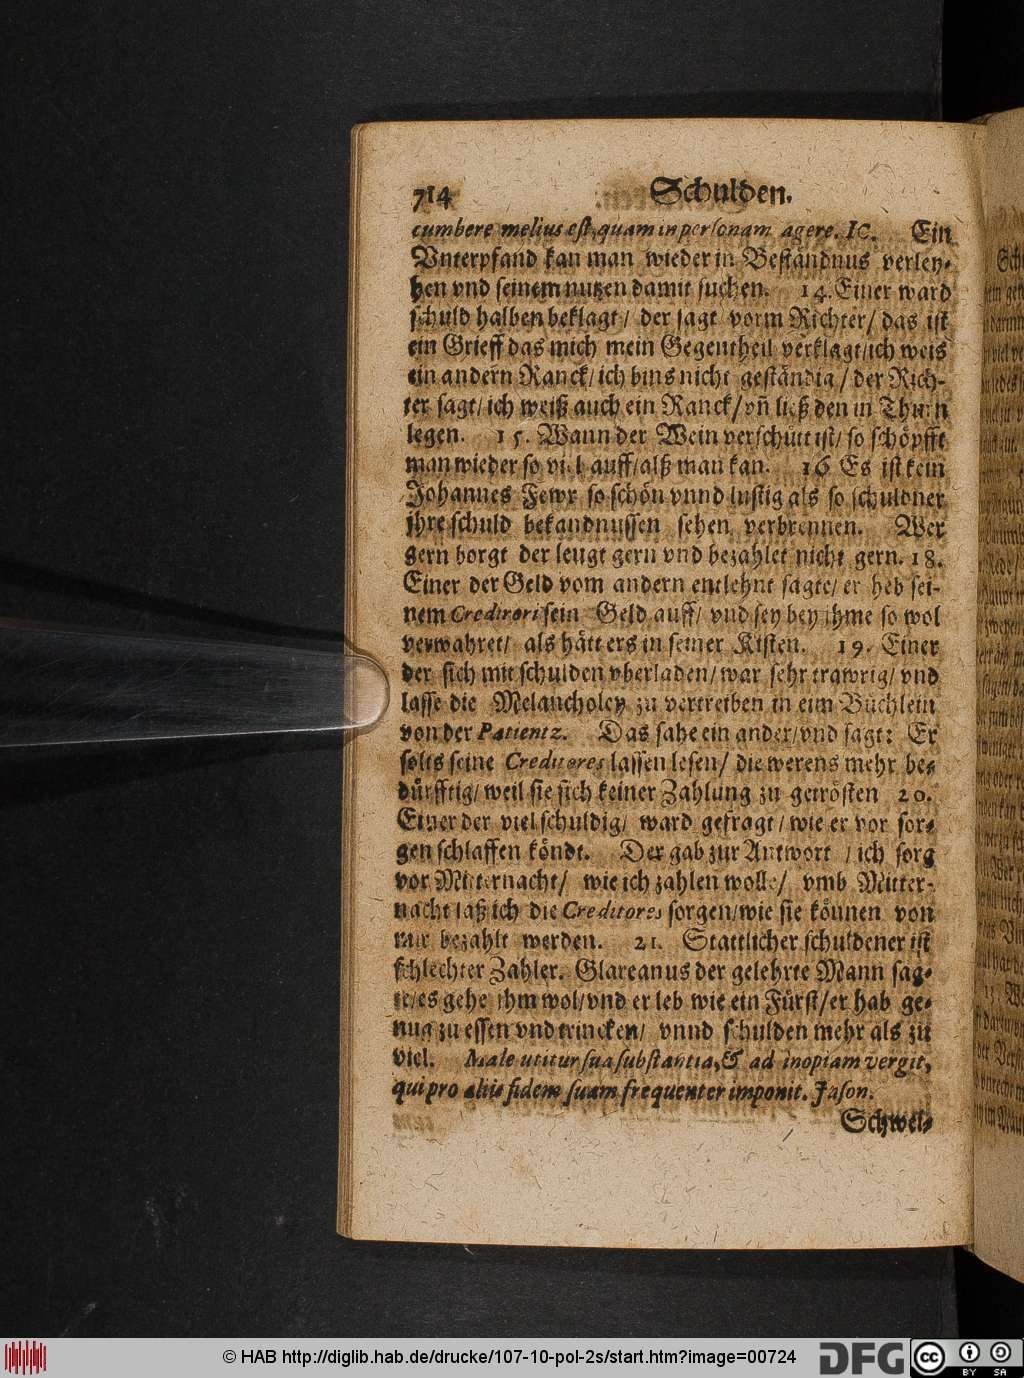 714 Schulden.
cumbere melius est, quam in personam agere. IC. Ein
Vnterpfand kan man wieder in Beständnus verley-
hen vnd seinem nutzen damit suchen. 14. Einer ward
schuld halben beklagt / der sagt vorm Richter / das ist
ein Grieff das mich mein Gegentheil verklagt / ich weis
ein andern Ranck / ich bins nicht geständig / der Rich-
ter sagt / ich weiß auch ein Ranck / vñ ließ den in Thurn
legen. 15. Wann der Wein verschütt ist / so schöpfft
man wieder so viel auff / alß man kan. 16 Es ist kein
Johannes Fewr so schön vnnd lustig als so schuldner
jhre schuld bekandnussen sehen verbrennen. Wer
gern borgt der leugt gern vnd bezahlet nicht gern. 18.
Einer der Geld vom andern entlehnt sagte / er heb sei-
nem Creditori sein Geld auff / vnd sey bey ihme so wol
verwahret / als hätt ers in seiner Kisten. 19. Einer
der sich mit schulden vberladen / war sehr trawrig / vnd
lasse die Melancholey zu vertreiben in eim Büchlein
von der Patientz. Das sahe ein ander / vnd sagt: Er
solts seine Creditores lassen lesen / die werens mehr be-
dürfftig / weil sie sich keiner Zahlung zu getrösten 20.
Einer der viel schuldig / ward gefragt / wie er vor sor-
gen schlaffen köndt. Der gab zur Antwort / ich sorg
vor Mitternacht / wie ich zahlen wolle / vmb Mitter-
nacht laß ich die Creditores sorgen / wie sie können von
mir bezahlt werden. 21. Stattlicher schuldener ist
schlechter Zahler. Glareanus der gelehrte Mann sag-
te / es gehe ihm wol / vnd er leb wie ein Fürst / er hab ge-
nug zu essen vnd trincken / vnnd schulden mehr als zu
viel. Male utitur sua substantia, & ad inopiam vergit,
qui pro aliis fidem suam frequenter imponit. Jason.
Schwel-
© HAB http://diglib.hab.de/drucke/107-10-pol-2s/start.htm?image=00724
DFG
cc
BY SA